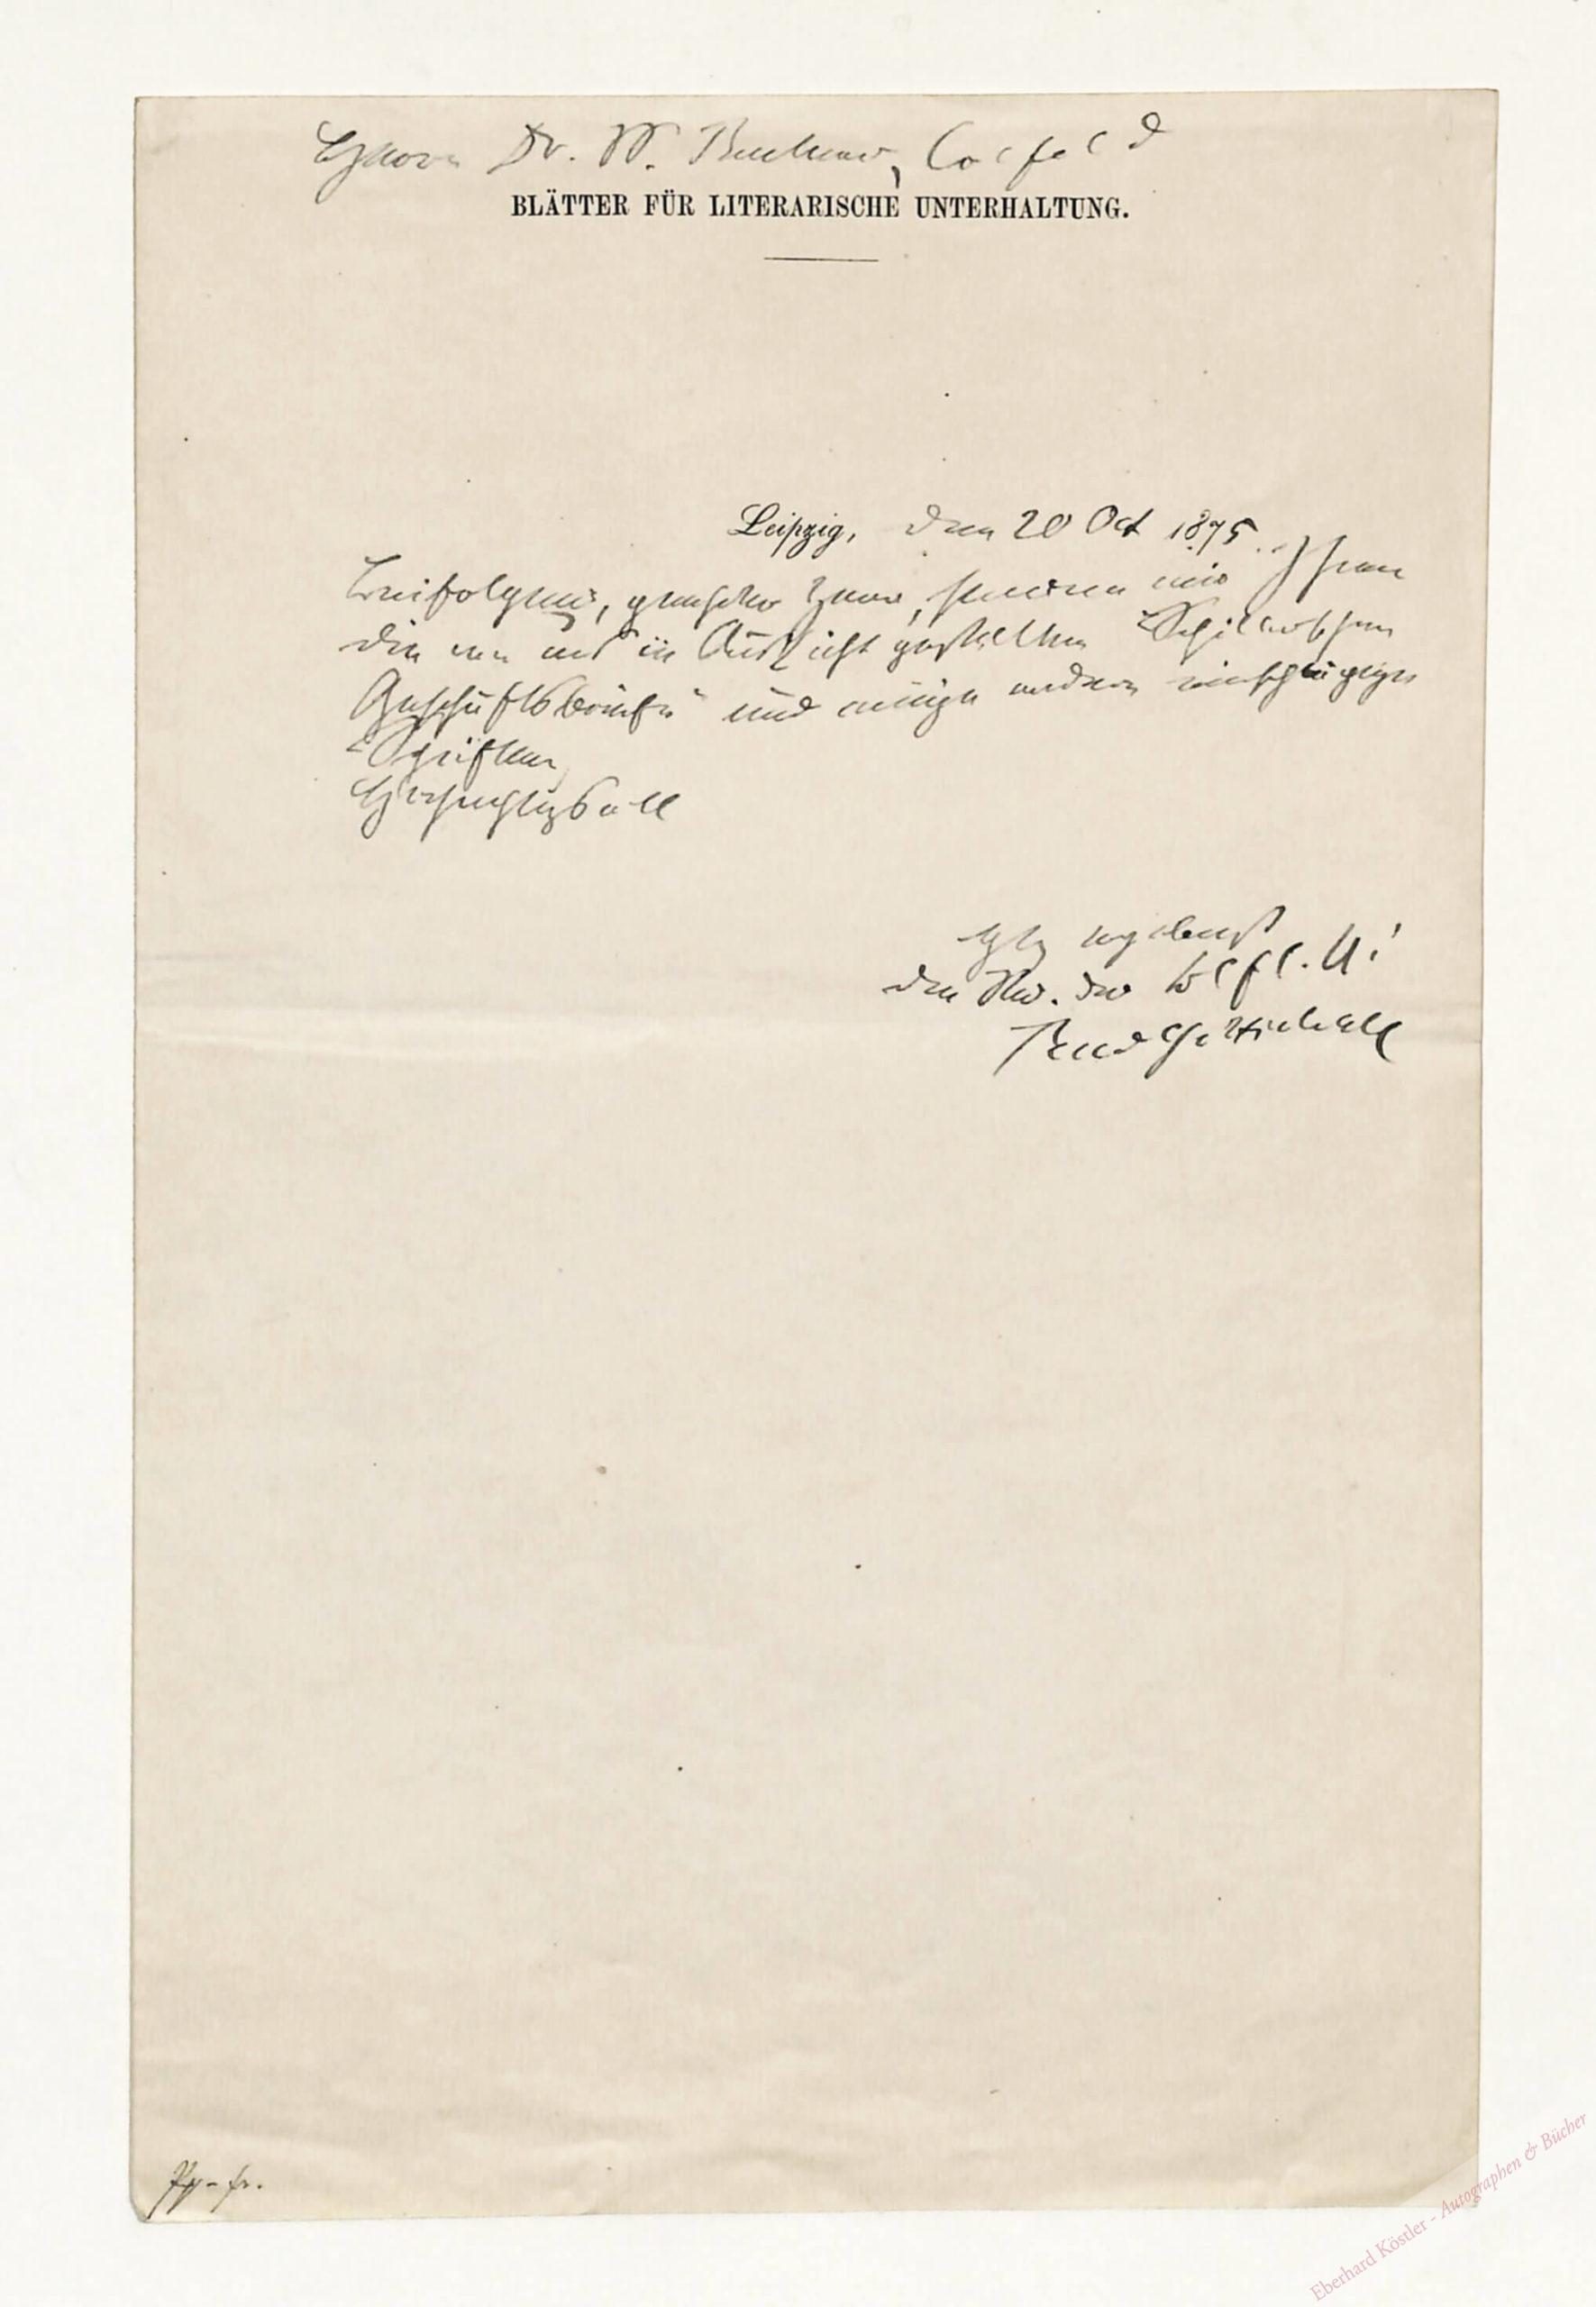 Herrn Dr. W. Buchner, Crefeld
BLÄTTER FÜR LITERARISCHE UNTERHALTUNG.
Leipzig, den 20 Oct 1875.
Beifolgend, geehrter Herr, senden wir Ihnen
die von uns in Aussicht gestellten "Schiller'schen
Geschäftsbriefe" und einige andere einschlägige
Schriften,
Hochachtungsvoll
ergebenst
die Red. der Bl. f. l. U.
Rud Gottschall
Eberhard Köstler - Autographen & Bücher